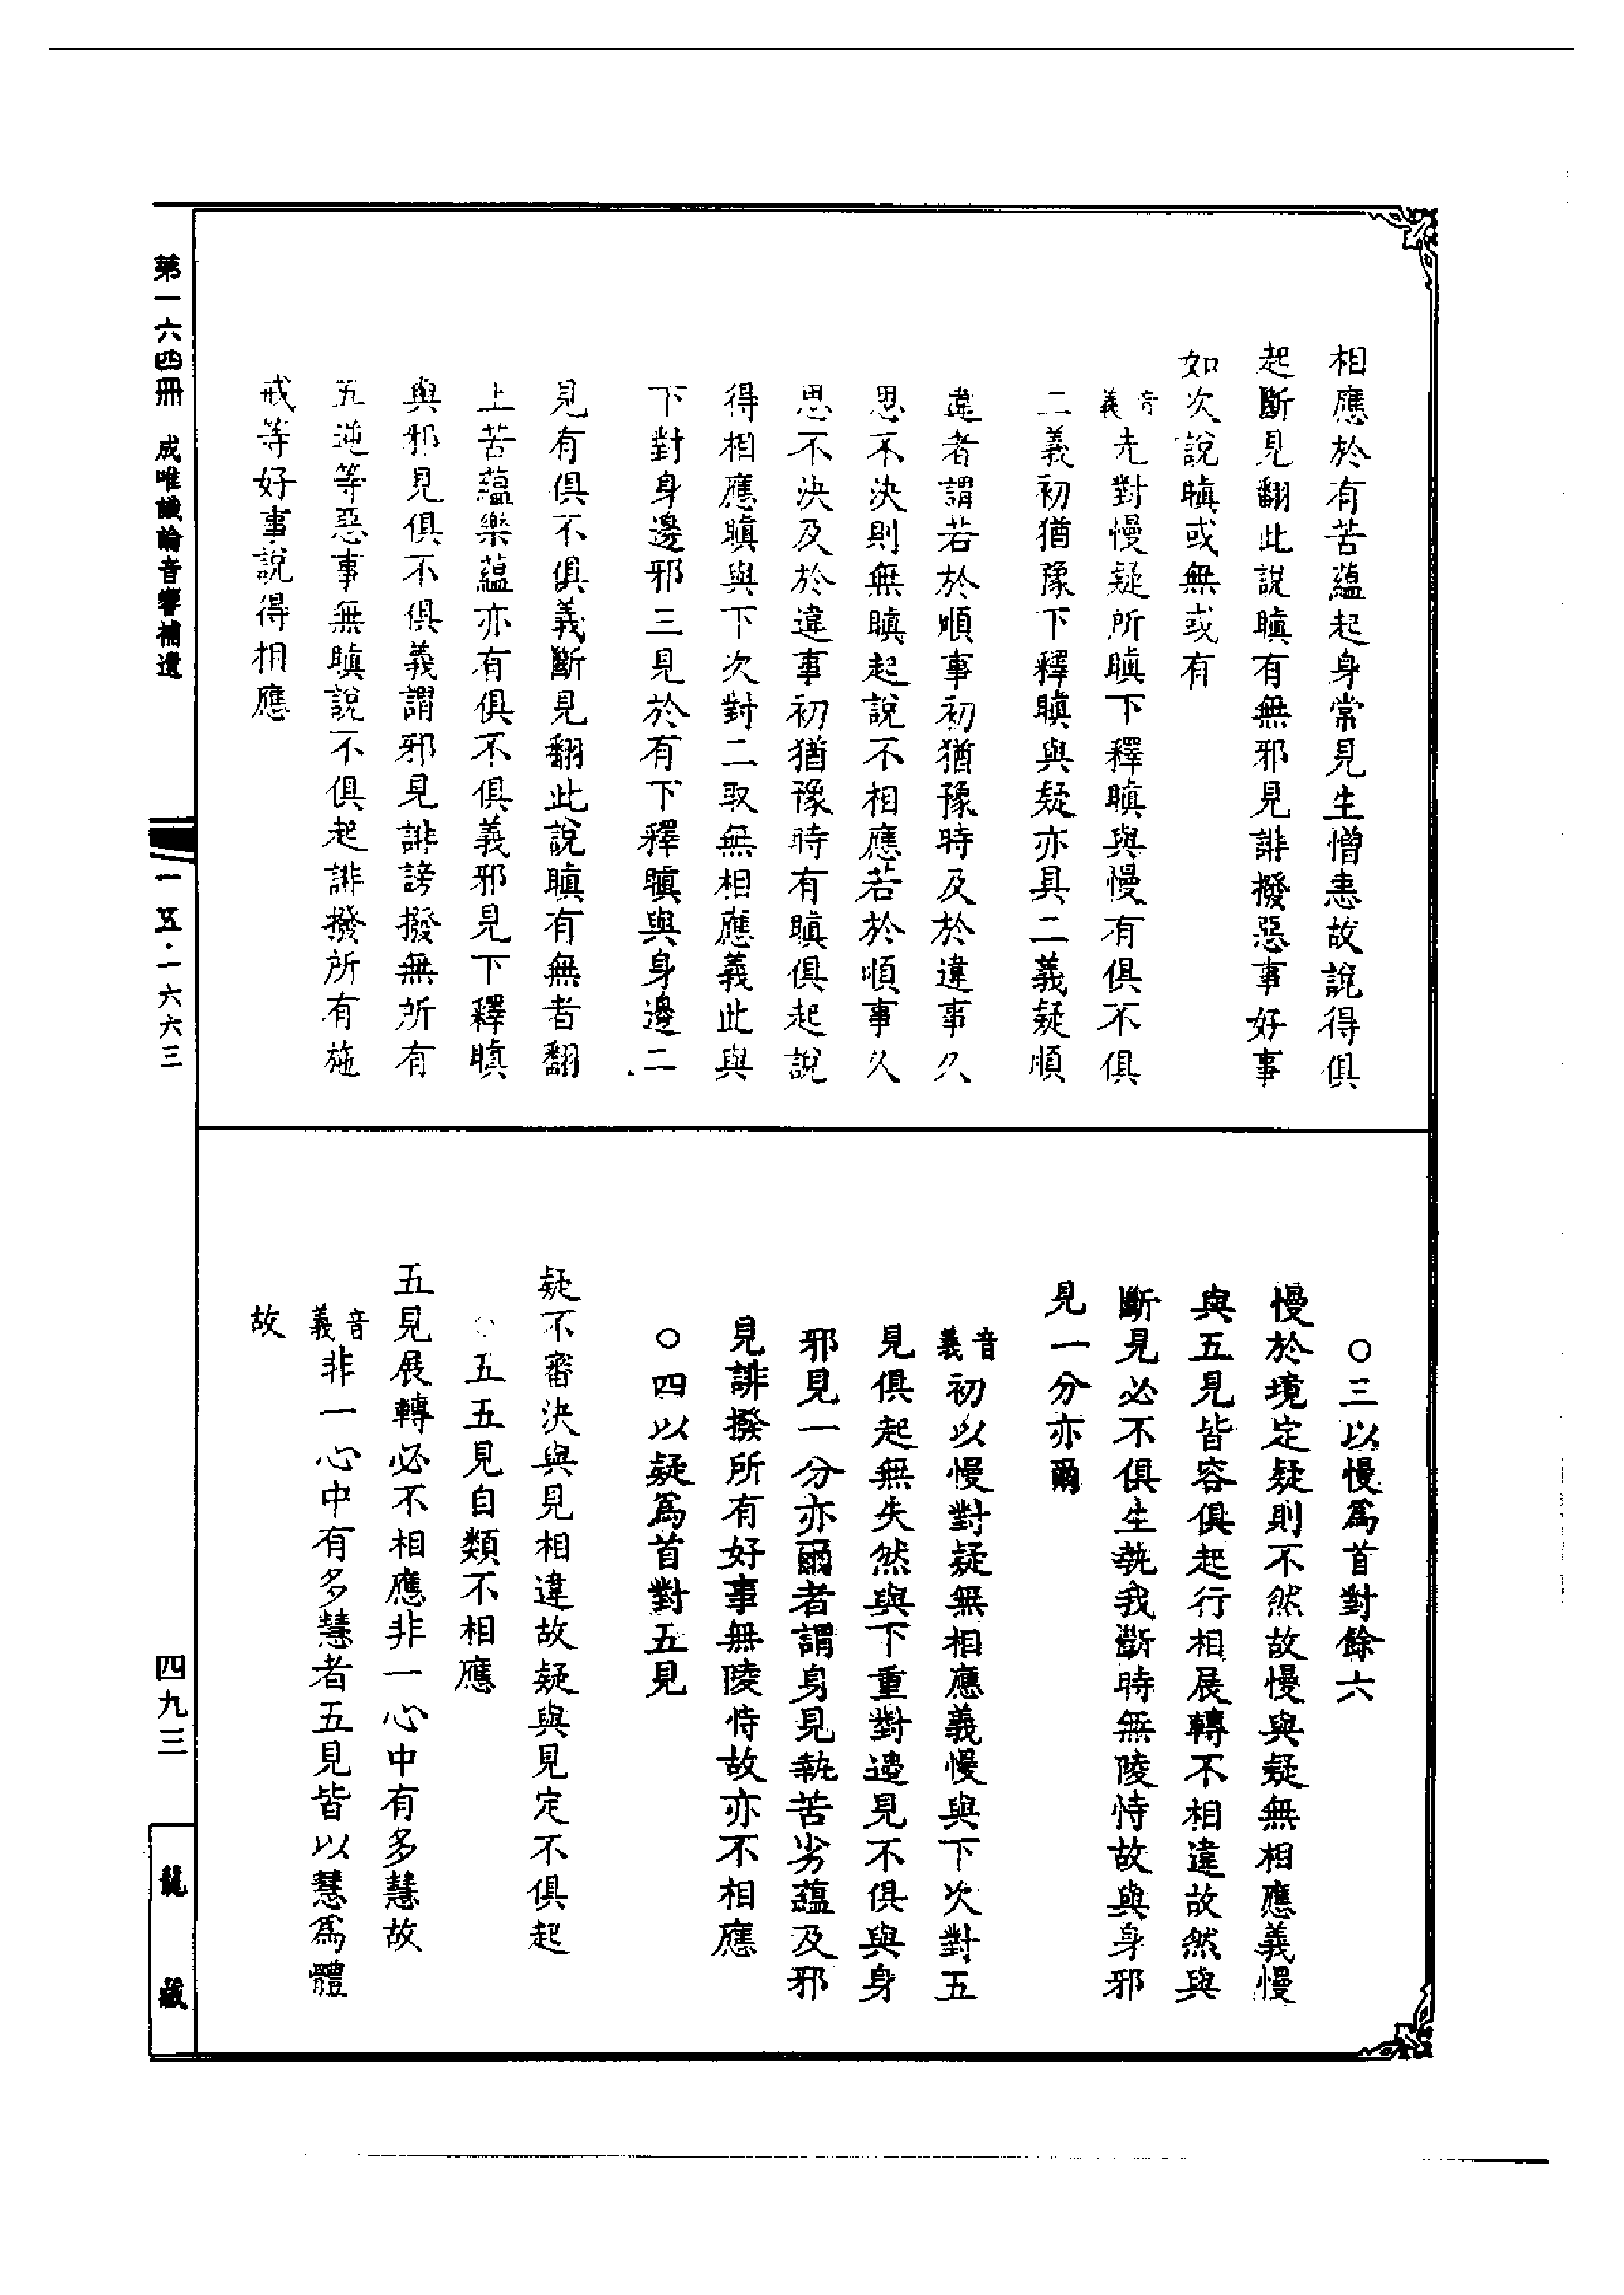 相應於有苦蘊起身常見生憎恚故說得俱
起斷見翻此說瞋有無邪見誹撥惡事好事
如次說瞋或無或有
音義先對慢疑所瞋下釋瞋與慢有俱不俱
二義初猶豫下釋瞋與疑亦具二義疑順
違者謂若於順事初猶豫時及於違事久
思不決則無瞋起說不相應若於順事久
思不決及於違事初猶豫時有瞋俱起說
得相應瞋與下次對二取無相應義此與
下對身邊邪三見於有下釋瞋與身邊二
見有俱不俱義斷見翻此說瞋有無者翻
上苦蘊樂蘊亦有俱不俱義邪見下釋瞋
與邪見俱不俱義謂邪見誹謗撥無所有
五逆等惡事無瞋說不俱起誹撥所有施
戒等好事說得相應
○三以慢為首對餘六
慢於境定疑則不然故慢與疑無相應義慢
與五見皆容俱起行相展轉不相違故然與
斷見必不俱生執我斷時無陵恃故與身邪
見一分亦爾
音義初以慢對疑無相應義慢與下次對五
見俱起無失然與下重對遣見不俱與身
邪見一分亦爾者謂身見執苦劣蘊及邪
見誹撥所有好事無陵恃故亦不相應
○四以疑為首對五見
疑不審決與見相違故疑與見定不俱起
○五五見自類不相應
五見展轉必不相應非一心中有多慧故
音義非一心中有多慧者五見皆以慧為體
故
第一六四冊 成唯識論音響補遺
一五·一六六三
四九三
龍藏